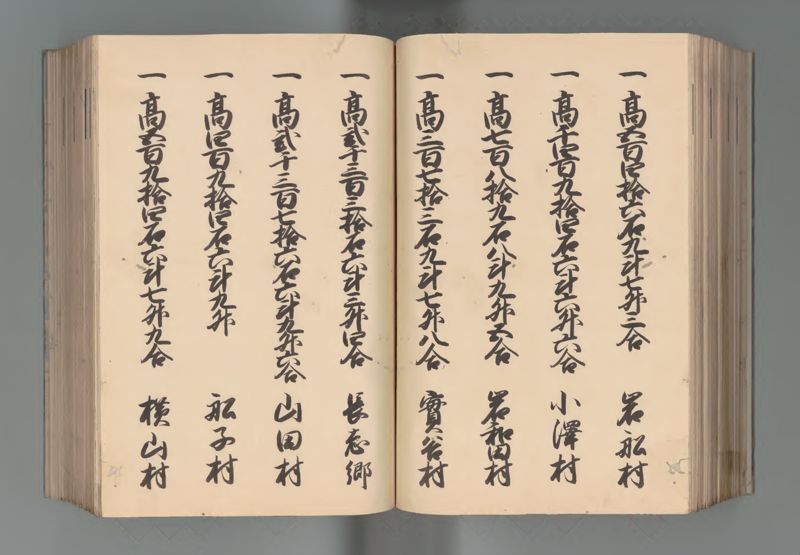 一 高五百四拾六石九斗七升三合 岩船村
一 高千四百九拾四石六斗六升六合 小澤村
一 高七百八拾九石八斗九升五合 岩和田村
一 高三百七拾三石九斗七升八合 實谷村
一 高貳千三百三拾石六斗三升四合 長志郷
一 高貳千三百七拾六石六斗九升六合 山田村
一 高四百九拾四石六斗九升 船子村
一 高五百九拾四石六斗七升九合 横山村